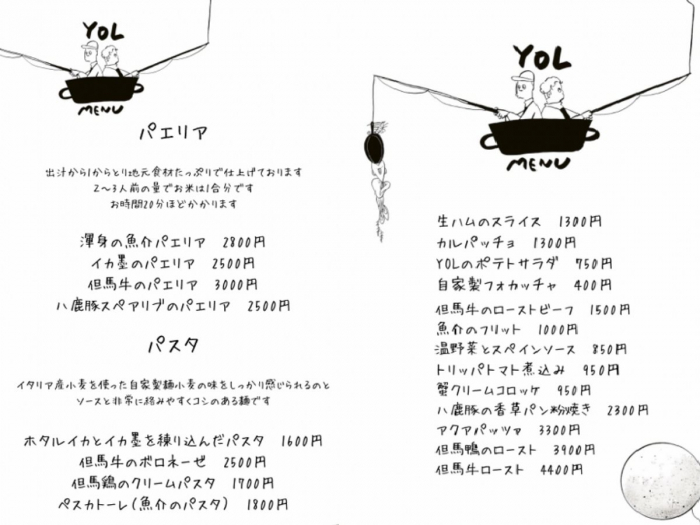 YOL
MENU
パエリア
出汁から1からとり地元食材たっぷりで仕上げております
2〜3人前の量でお米は1合分です
お時間20分ほどかかります
渾身の魚介パエリア 2800円
イカ墨のパエリア 2500円
但馬牛のパエリア 3000円
八鹿豚スペアリブのパエリア 2500円
パスタ
イタリア産小麦を使った自家製麺小麦の味をしっかり感じられるのと
ソースと非常に絡みやすくコシのある麺です
ホタルイカとイカ墨を練り込んだパスタ 1600円
但馬牛のボロネーゼ 2500円
但馬鶏のクリームパスタ 1700円
ペスカトーレ(魚介のパスタ) 1800円
YOL
MENU
生ハムのスライス 1300円
カルパッチョ 1300円
YOLのポテトサラダ 750円
自家製フォカッチャ 400円
但馬牛のローストビーフ 1500円
魚介のフリット 1000円
温野菜とスペインソース 850円
トリッパトマト煮込み 950円
蟹クリームコロッケ 950円
八鹿豚の香草パン粉焼き 2300円
アクアパッツァ 3300円
但馬鴨のロースト 3900円
但馬牛ロースト 4400円